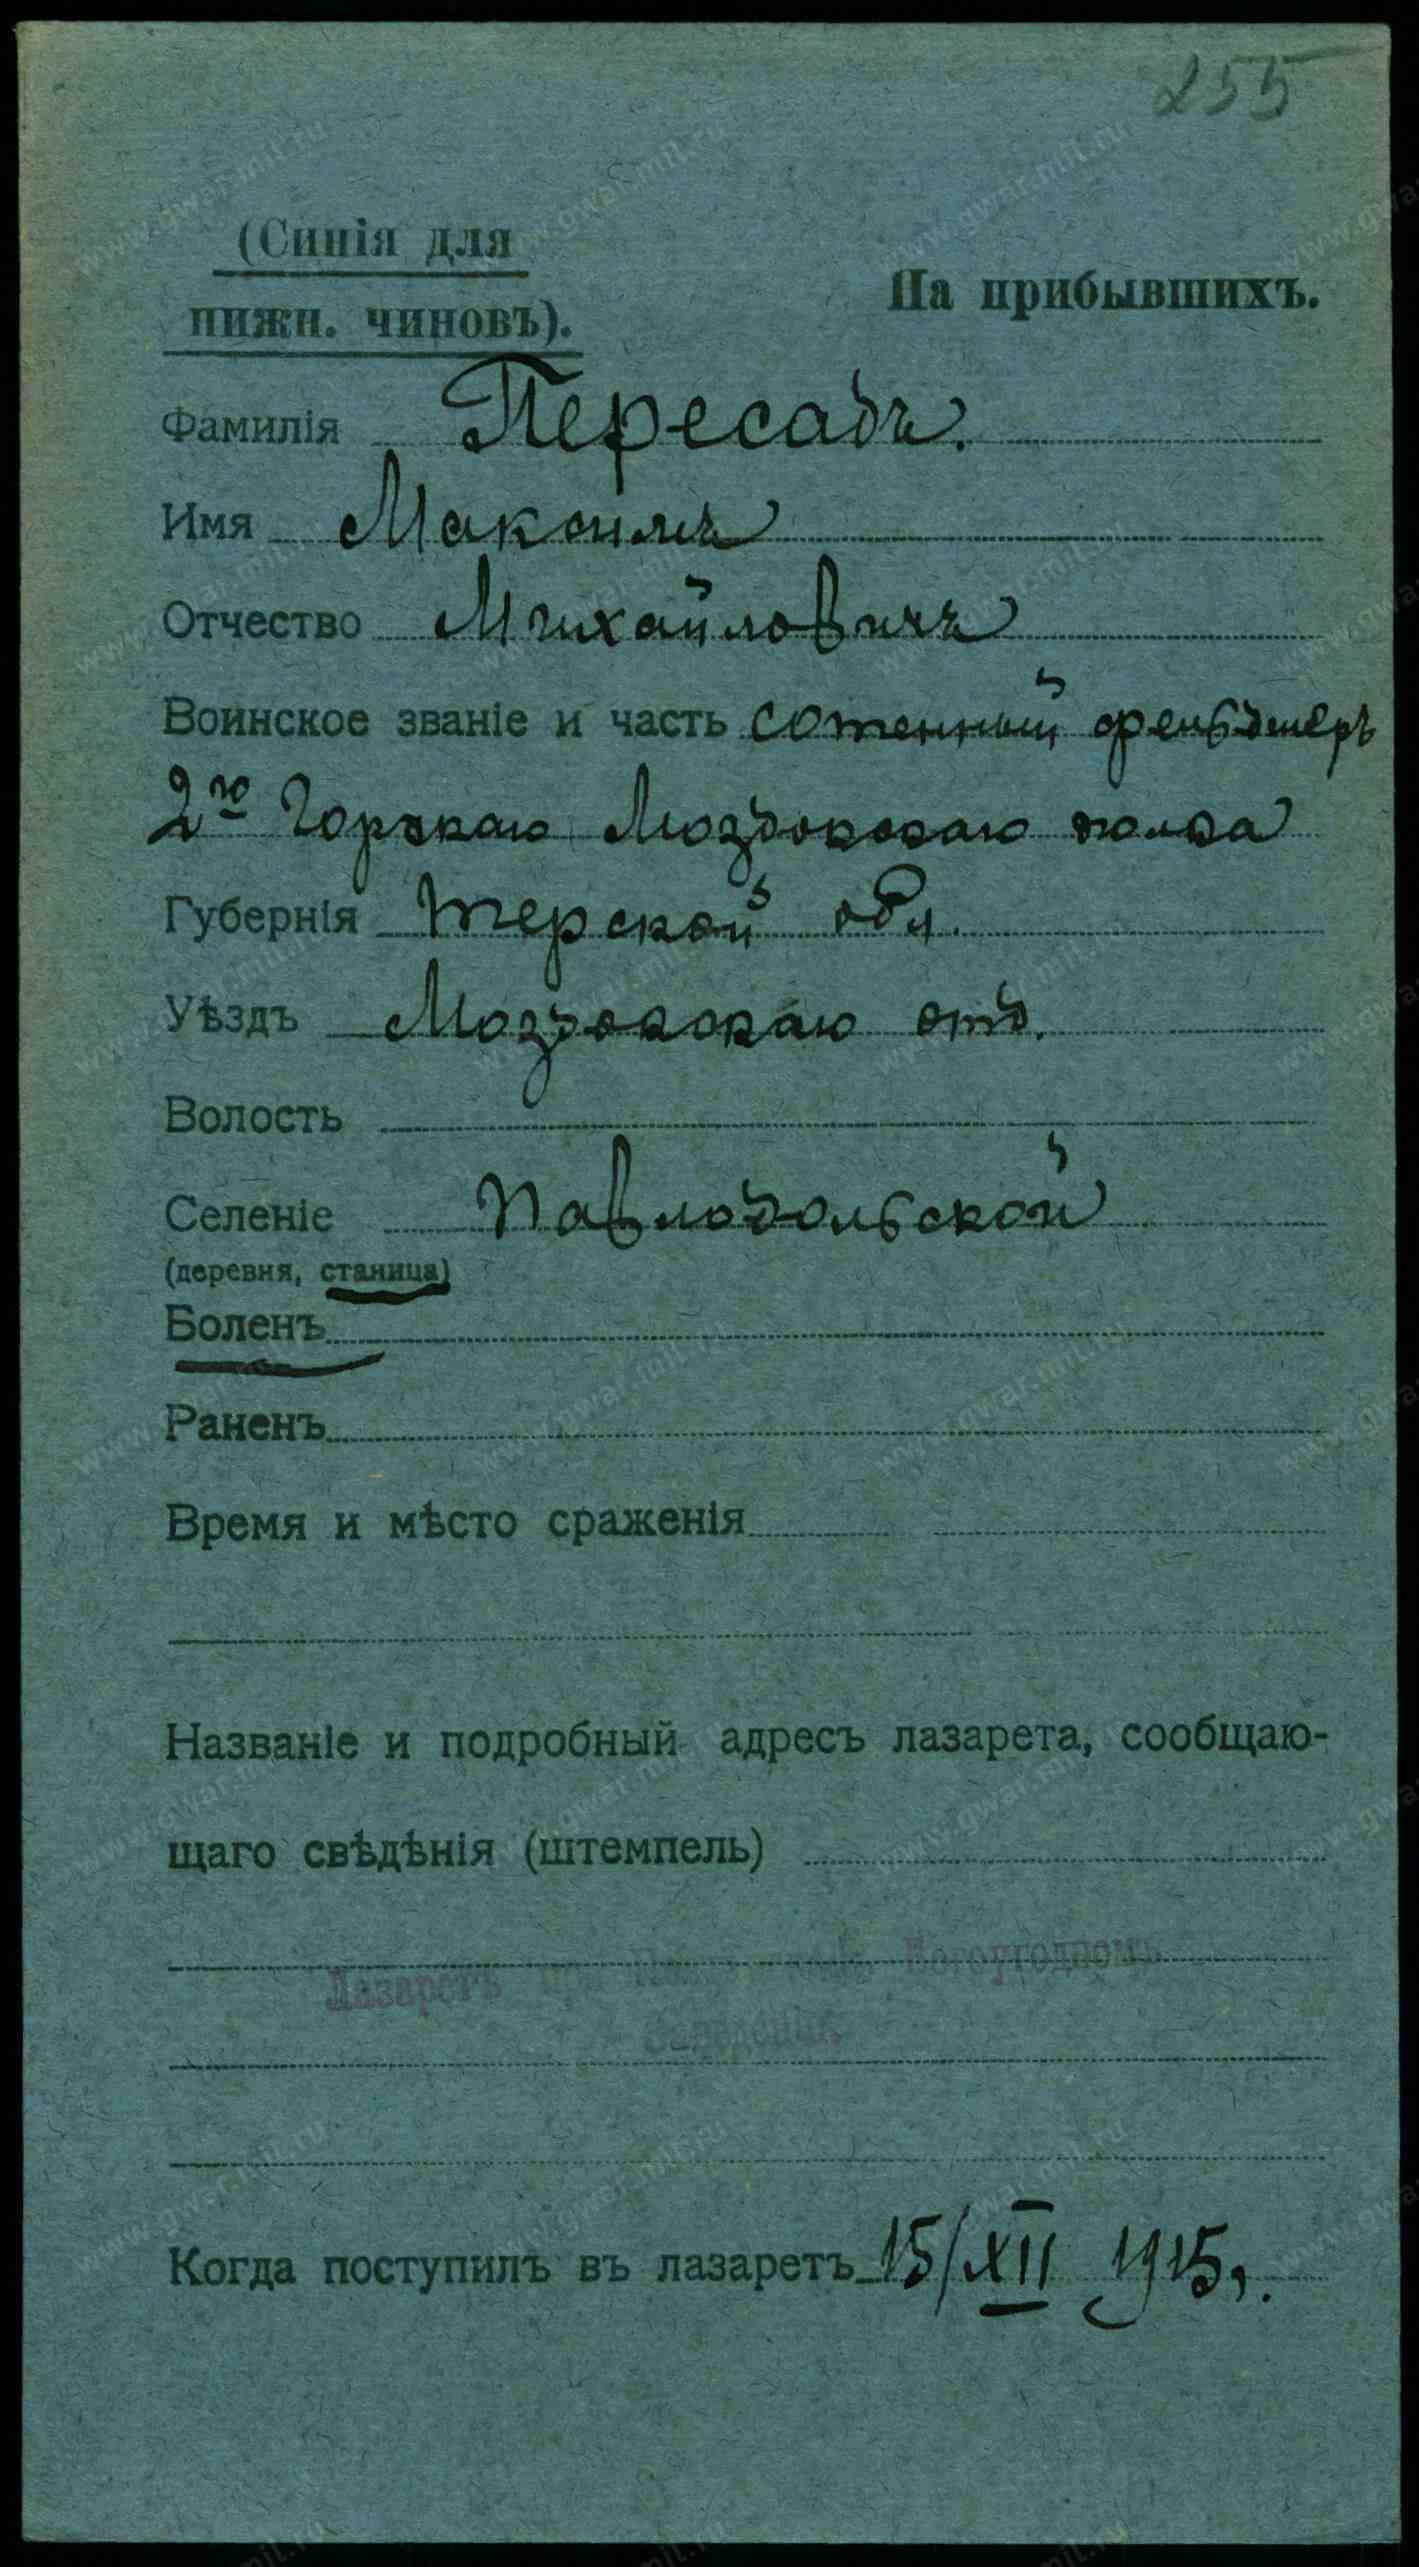 255
(Синія для
нижн. чиновъ).
На прибывшихъ.
Фамилія Пересадъ.
Имя Максимъ
Отчество Михайловичъ
Воинское званіе и часть сотенный фельдшеръ
2го Горскаго Моздокскаго полка
Губернія Терской обл.
Уѣздъ Моздокскаго отд.
Волость
Селеніе Павлодольской
(деревня, станица)
Боленъ
Раненъ
Время и мѣсто сраженія
Названіе и подробный адресъ лазарета, сообщаю-
щаго свѣдѣнія (штемпель)
Лазаретъ при Богоугодномъ
Заведеніи.
Когда поступилъ въ лазаретъ 15/XII 1915 г.
www.gwar.mil.ru